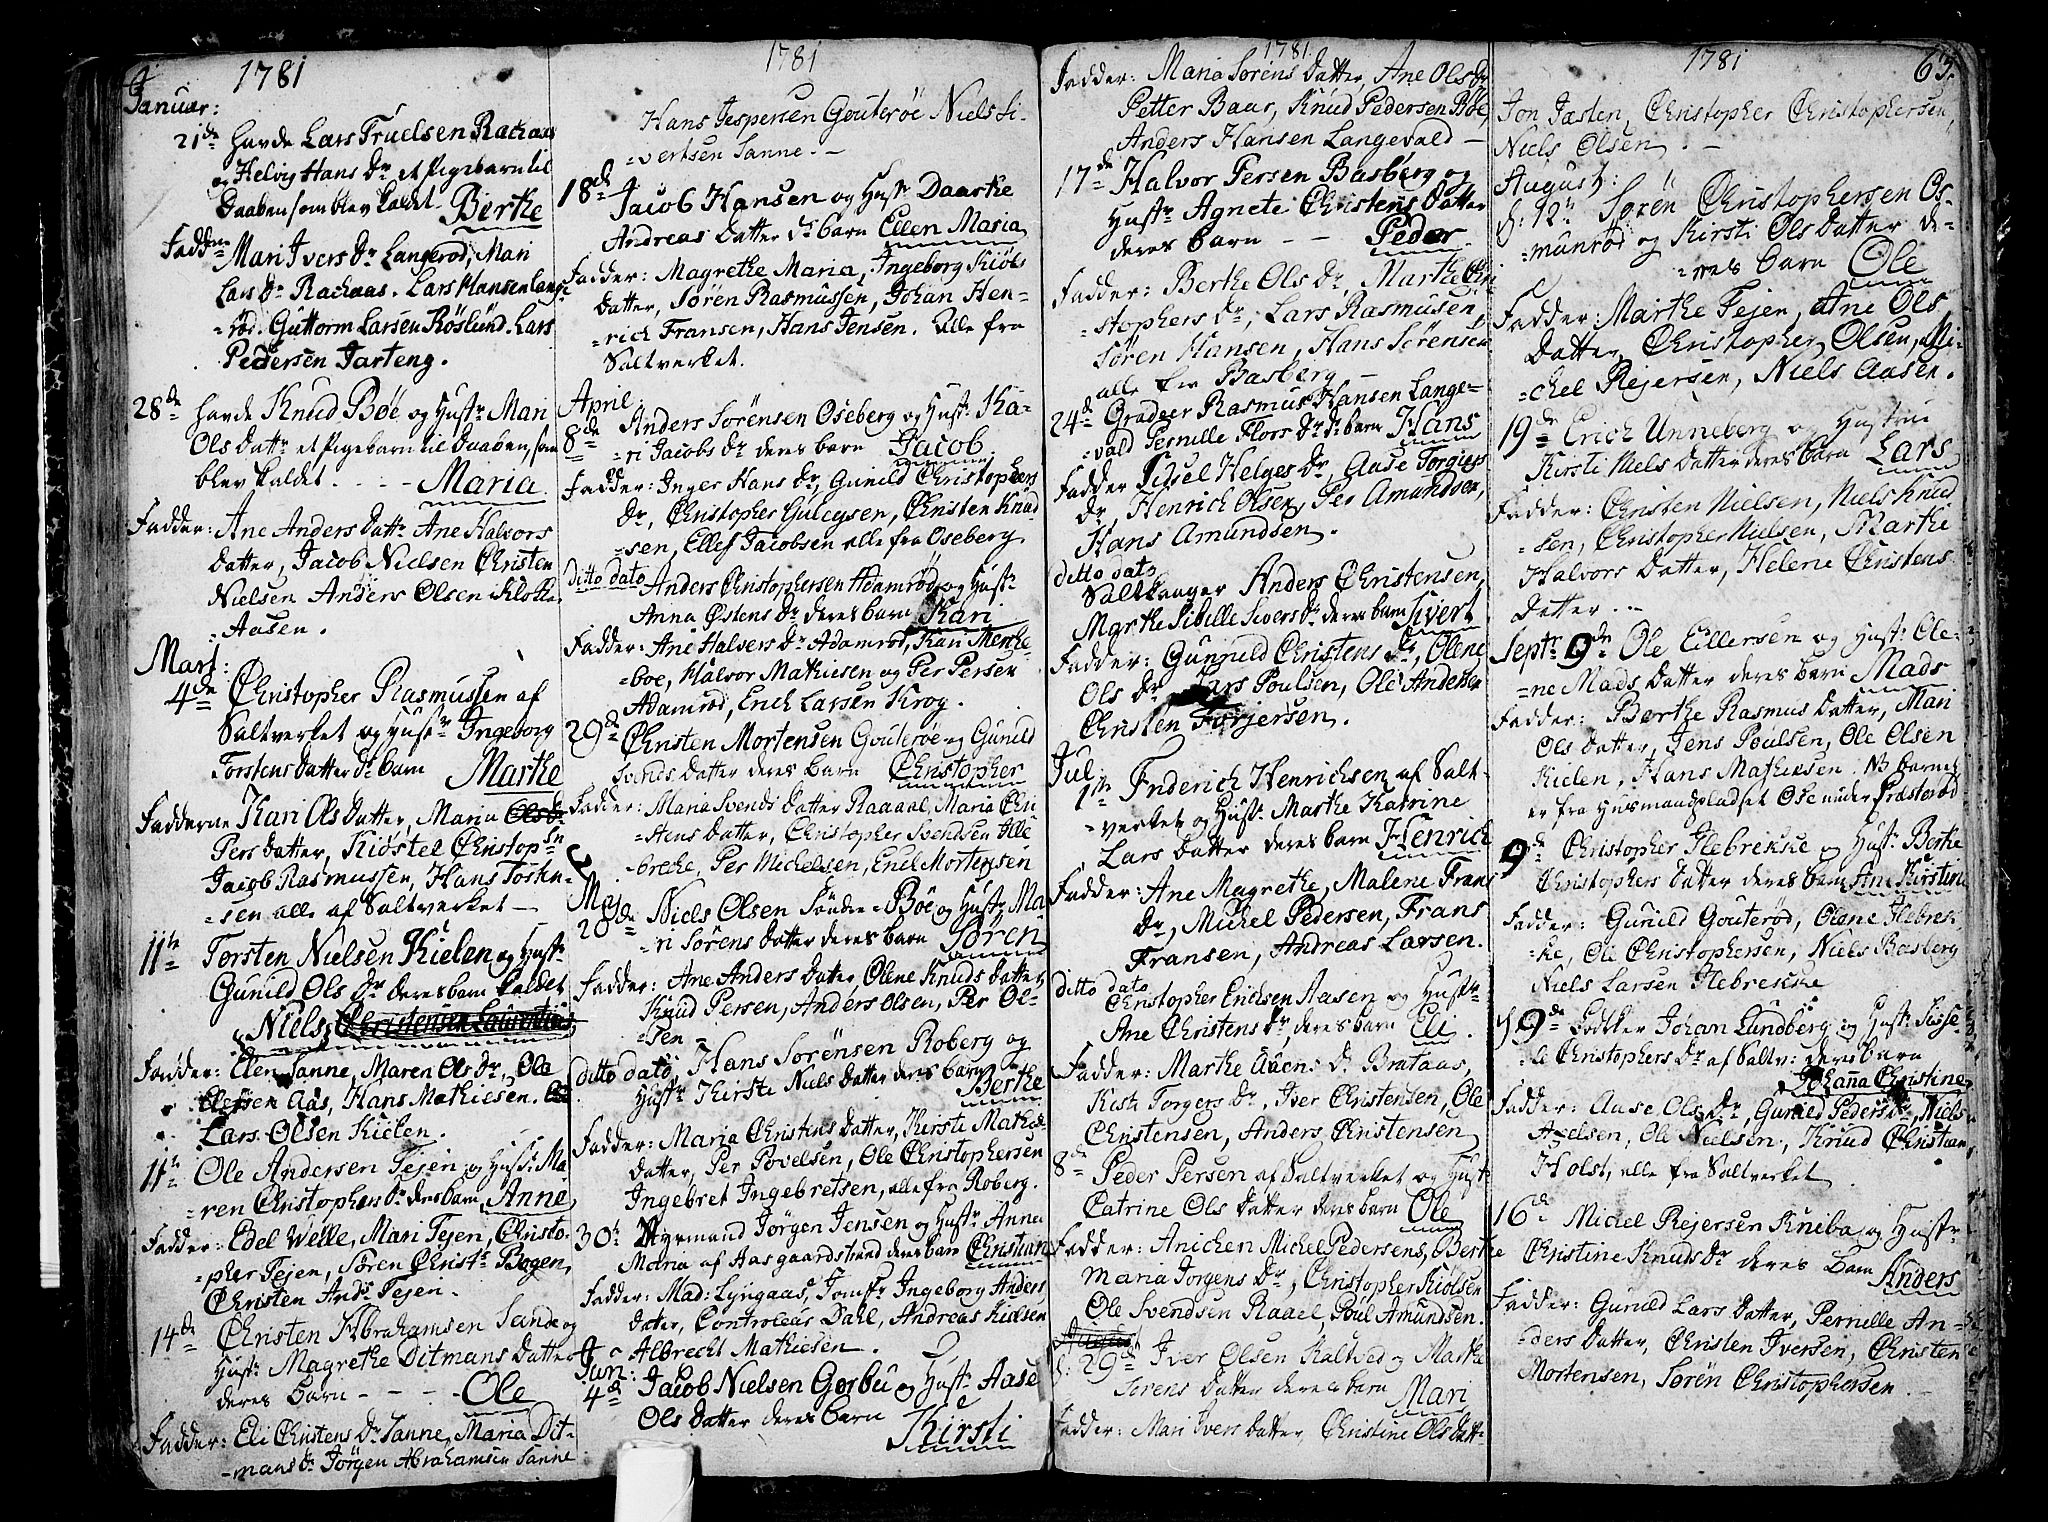 1781
Januar:
21de havde Lars Truelsen Rachaas
og Helvig Hans Dr. et Pigebarn til
Daaben som blev kaldet Berthe
Fadderne Mari Ivers Dr. Langerød, Mari
Lars Dr. Rachaas. Lars Hansen Lange-
=rød. Guttorm Larsen Røslund. Lars
Pedersen Jarteng.
28de havde Knud Bøe og Hustr. Mari
Ols Dattr. et Pigebarn til Daaben, som
blev kaldet. - - - Maria
Fadder: Ane Anders Dattr. Ane Halvors
Datter, Jacob Nielsen Christen
Nielsen Anders Olsen Klokke
=Aasen.
Mart:
4de Christopher Rasmussen af
Saltverket og Hustr. Ingeborg
Torstens Datter Ds. barn Marthe
Fadderne Kari Ols Datter, Maria Ols Dr
Pers Datter, Kiøstel Christopsn
Jacob Rasmussen, Hans Tostn-
=sen alle af Saltverket —
11te Torsten Nielsen Kielen og Hustr.
Gunild Ols Dr. deres barn kaldet
Niels Christensen Laurentius
Fadder: Elen Sanne, Maren Ols Dr., Ole
Olefsen Aas, Hans Mathiesen.
Lars Olsen Kielen.
11te Ole Andersen Fejen og Hust: Ma
=ren Christophers Dr. deres barn Anne
Fadder: Edel Welle, Mari Fejen, Christo-
=pher Fejen, Søren Christs. Bogen,
Christen Ands. Fejen.
14de Christen Abrahamsen Sande og
Hustr. Magrethe Ditmans Datter
deres barn - - - - Ole
Fadder: Eli Christens Dr. Sanne, Maria Dit-
-mans Dr. Jørgen Abrahamsen Sanne
1781
Hans Jespersen Gouterøe Niels Si-
=vertsen Sanne. —
18de Jacob Hansen og Hustr Daarthe
Andreas Datter Ds. barn Ellen Maria
Fadder: Magrethe Maria, Ingeborg Kiøls
Datter, Sören Rasmussen, Johan Hen-
=rich Fransen, Hans Jensen. Alle fra
Saltverket.
April
8de Anders Sörensen Oseberg og Hustr. Ka-
=ri Jacobs Dr. deres barn Jacob
Fadder: Inger Hans Dr., Gunild Christophers
Dr., Christopher Gulleysen, Christen Knud
=sen, Ellef Jacobsen alle fra Oseberg.
ditto dato Anders Christophersen Adamrød og Hustr.
Anna Østens Dr. deres barn Kari
Fadder: Ane Halvers Dr. Adamrød, Kari Menke
=boe, Halvor Mathiesen og Per Persen
Adamrød, Erich Larsen Krog.
29de Christen Mortensen Gouterøe og Gunild
Svends Datter deres barn Christopher
Fadder: Maria Svends Datter Raaaal, Maria Chri
=stens Datter, Christopher Svendsen Ille
breche, Per Michelsen, Enel Mortensen
Maj
20de Niels Olsen Söndre =Bøe og Hustr. Ma
=ri Sörens Datter deres barn Sören
Fadder: Ane Anders Datter, Olene Knuds Datter
Knud Persen, Anders Olsen, Per Ol-
=sen -
ditto dato, Hans Sørensen Roberg og
Hustr. Kirste Niels Datter deres barn Berthe
Fadder: Maria Christens Datter, Kirste Mathis
Datter, Per Povelsen, Ole Christophersen
Ingebret Ingebretsen, alle fra Roberg.
30t. Styrmand Jörgen Jensen og Hustr. Anna
Maria af Aasgaardstrand deres barn Christian
Fadder: Mad: Lyngaas, Jomfr. Ingeborg Anders
Dater, Controleus Dahl, Andreas Kielsen
Albrecht Mathiesen.
Jun:
4de Jacob Nielsen Gorbu og Hustr. Aase
Ols Datter deres barn Kirsti
1781
Fadder: Maria Sørens Datter, Ane Ols Dr
Petter Baar, Knud Pedersen Bøe,
Anders Hansen Langevald —
17de Halvor Persen Basberg og
Hustr. Agnete Christens Datter
deres barn - - Peder
Fadder: Berthe Ols Dr., Marthe Chri
=stophers Dr., Lars Rasmusen,
Søren Hansen, Hans Sörensen
alle fra Basberg. —
24de Gradeer Rasmus Hansen Lange=
vald Pernille Flors Dr. Ds. barn Hans
Fadder Sidsel Helges Dr., Aase Torgiers
Dr., Henrich Olsen, Per Amundsen,
Hans Amundsen.
ditto dato
Saltkanger Anders Christensen,
Marthe Sibille Sivers Dr. deres barn Sivert
Fadder: Gunnild Christens Dr., Olene
Ols Dr. Lars Poulsen, Ole Andersen
Christen Torjersen.
Jul.
1te Frederich Henrichsen af Salt-
=verket og Hust. Marthe Katrine
Lars Datter deres barn Henrich
Fadder: Ane Magrethe, Malene Frans
Dr., Michel Pedersen, Frans
Fransen, Andreas Larsen.
ditto dato
Christopher Ericksen Aasen og Hustr.
Ane Christens Dr., deres barn Eli.
Fadder: Marthe Auens D. Brataas,
Kisti Torgers Dr., Iver Christensen, Ole
Christensen, Anders Christensen
8de Peder Persen af Saltverket og Hustr.
Catrine Ols Datter deres barn Ole
Fadder: Anichen Michel Pedersens, Berthe
Maria Jörgens Dr., Christopher Kiølsen
Ole Svendsen Raael, Poul Amundsen.
d: 29de Iver Olsen Kaltved og Marthe
Sørens Datter deres barn Mari
Fadder: Mari Ivers Datter, Christine Ols Datt=
1781 63.
Jon Jæsten, Christopher Christophersen,
Niels Olsen. —
August:
d: 12te Sörön Christophersen Os-
=munrød og Kirsti Ols Datter de-
=res barn Ole
Fadder: Marthe Fejen, Ane Ols
Datter, Christopher Olsen, Mi-
=chel Rejersen, Niels Aasen.
19de Erich Unneberg og Hustrue
Kirsti Niels Datter deres barn Lars
Fadder: Christen Nielsen, Niels Knud
=sen, Christopher Nielsen, Marthe
Halvors Datter, Helene Christens
Datter. --
Septr. 9de Ole Eillersen og Hust. Ole-
=ne Mads Datter deres barn Mads
Fadder: Berthe Rasmus Datter, Mari
Ols Datter, Jens Poulsen, Ole Olsen
Kielen, Hans Mathiesen. NB barnet
er fra Husmandpladset Ose under Præsterød
9de Christopher Ilebrekke og Hustr. Berthe
Christophers Datter deres barn Ane Kirstine
Fadder: Gunild Gouterød, Olene Ilebrek
=ke, Ole Christophersen, Niels Basberg
Niels Larsen Ilebrekke
d. 9de Bødkker Johan Lundberg og Hustr. Sisse-
=le Christophers Dr. af Saltv: deres barn
Johanna Christine
Fadder: Aase Ols Dr., Gunild Peders Dr., Niels
Axelsen, Ole Nielsen., Knud Christian
Holst, alle fra Saltverket
16de Michel Rejersen Kneiba og Hustr.
Christine Knuds Dr. deres barn Anders
Fadder: Gunild Lars Datter, Pernelle An-
=ders Datter, Christen Iversen, Christen
Mortensen, Sörön Christophersen.